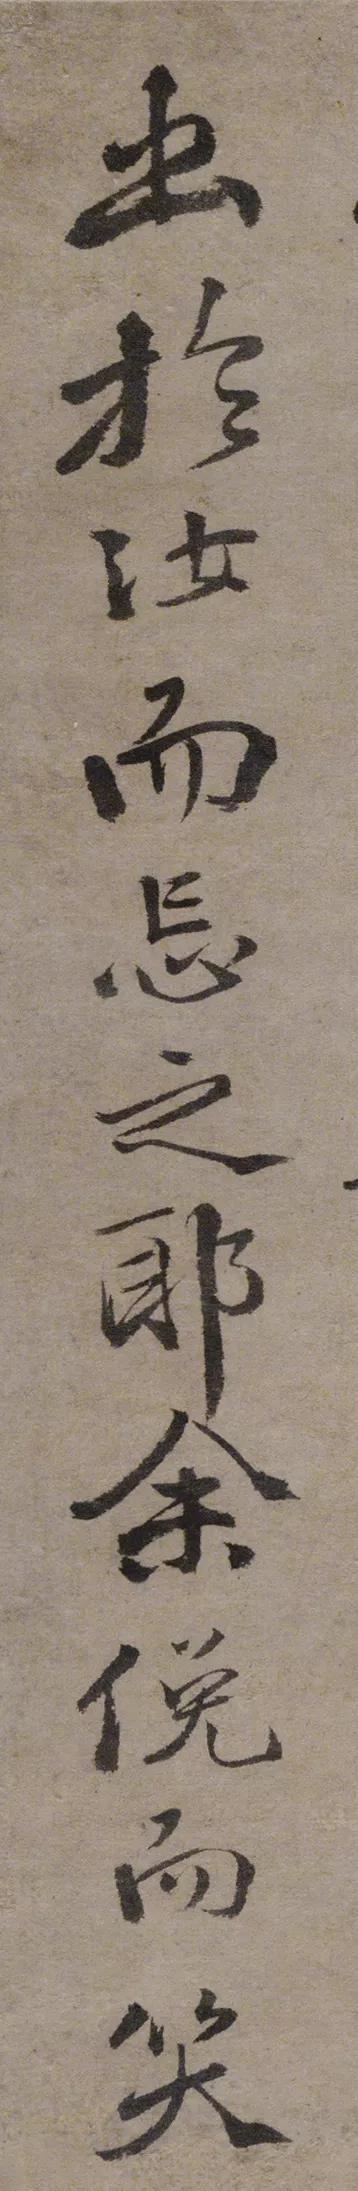 出於汝而忘之耶余俛而笑